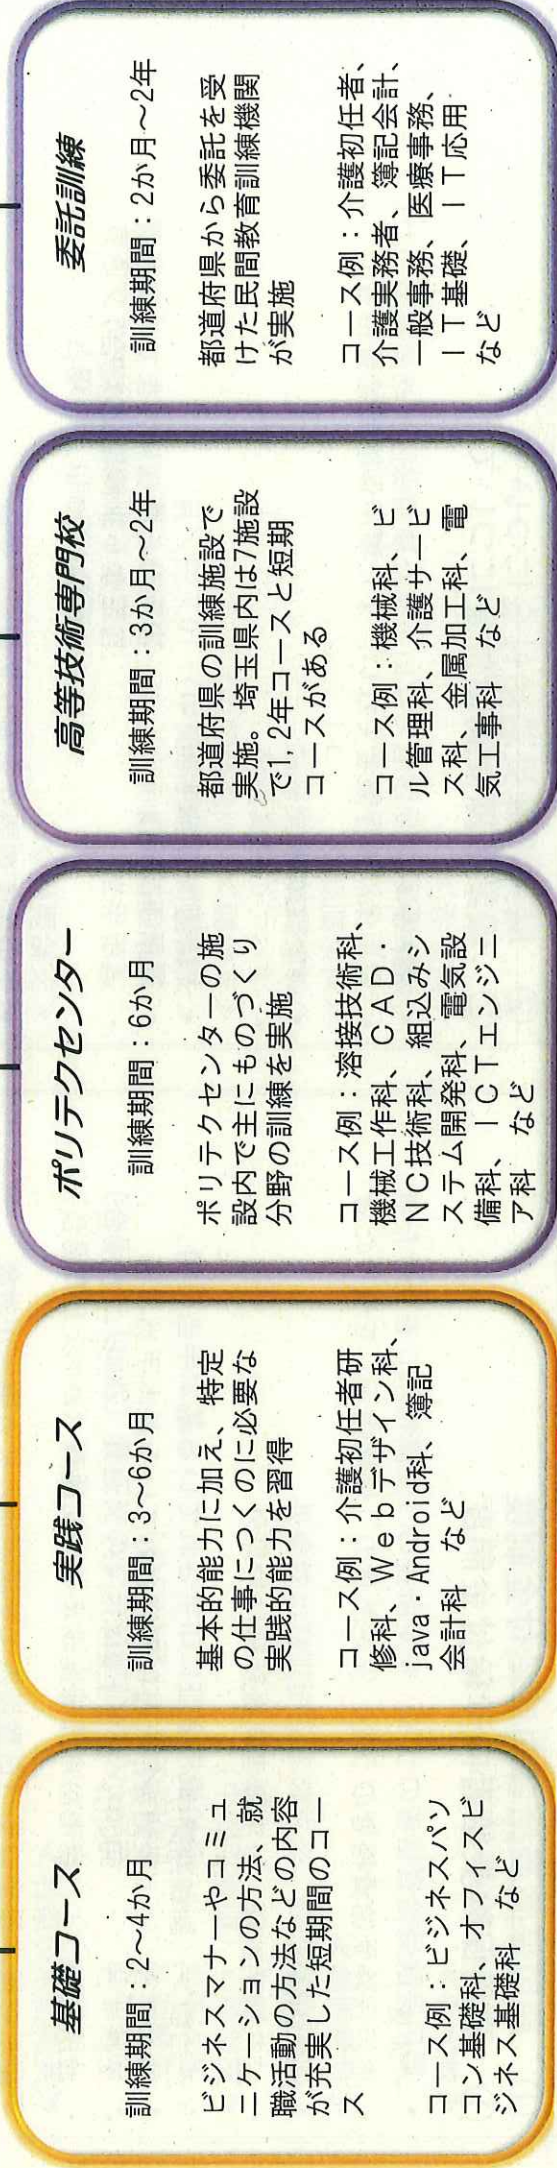 基礎コース
訓練期間：2～4か月
ビジネスマナーやコミュ
ニケーションの方法、就
職活動の方法などの内容
が充実した短期間のコー
ス
コース例：ビジネスパソ
コン基礎科、オフィスビ
ジネス基礎科　など
実践コース
訓練期間：3～6か月
基本的能力に加え、特定
の仕事につくのに必要な
実践的能力を習得
コース例：介護初任者研
修科、Ｗｅｂデザイン科、
java・Android科、簿記
会計科　など
ポリテクセンター
訓練期間：6か月
ポリテクセンターの施
設内で主にものづくり
分野の訓練を実施
コース例：溶接技術科、
機械工作科、ＣＡＤ・
ＮＣ技術科、組込みシ
ステム開発科、電気設
備科、ＩＣＴエンジニ
ア科　など
高等技術専門校
訓練期間：3か月～2年
都道府県の訓練施設で
実施。埼玉県内は7施設
で1,2年コースと短期
コースがある
コース例：機械科、ビ
ル管理科、介護サービ
ス科、金属加工科、電
気工事科　など
委託訓練
訓練期間：2か月～2年
都道府県から委託を受
けた民間教育訓練機関
が実施
コース例：介護初任者、
介護実務者、簿記会計、
一般事務、医療事務、
ＩＴ基礎、ＩＴ応用
など